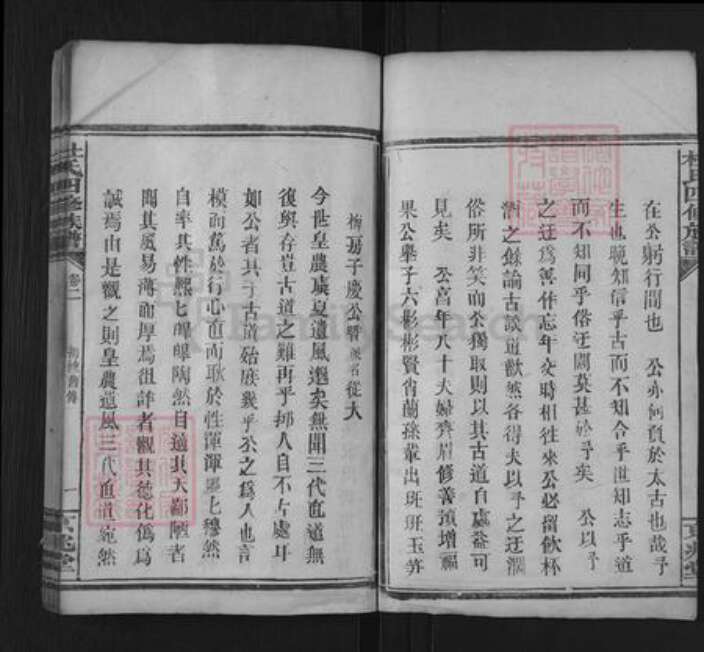 杜氏四修族譜
京兆堂
在公躬行間也　公亦何負於太古也哉予
生也晚知信乎古而不知合乎世知志乎道
而不知同乎俗迂闊莫甚於予矣　公以予
之迂爲善作忘年交時相往來公必留飲杯
酒之餘論古談道歡然各得夫以予之迂濶
俗所非笑而公獨取則以其古道自處益可
見矣　公高年八十夫婦齊眉修善積增福
果公舉子六彬彬賢肖蘭孫輩出班班玉笋
梅房子慶公贊 派名從大
今世皇農虞夏遺風邈矣無聞三代直道無
復與存豈古道之難再乎抑人自不古處耳
如公者其于古道殆庶幾乎公之爲人也言
模而篤於行心直而耿於性渾渾噩匕穆然
自率其性熙匕皞皞陶然自適其天鄙陋者
聞其風易薄而厚焉狙詐者觀其德化僞爲
誠焉由是觀之則皇農道風三代直道宛然
杜氏四修族譜
卷二
一
京兆堂
FamilySearch